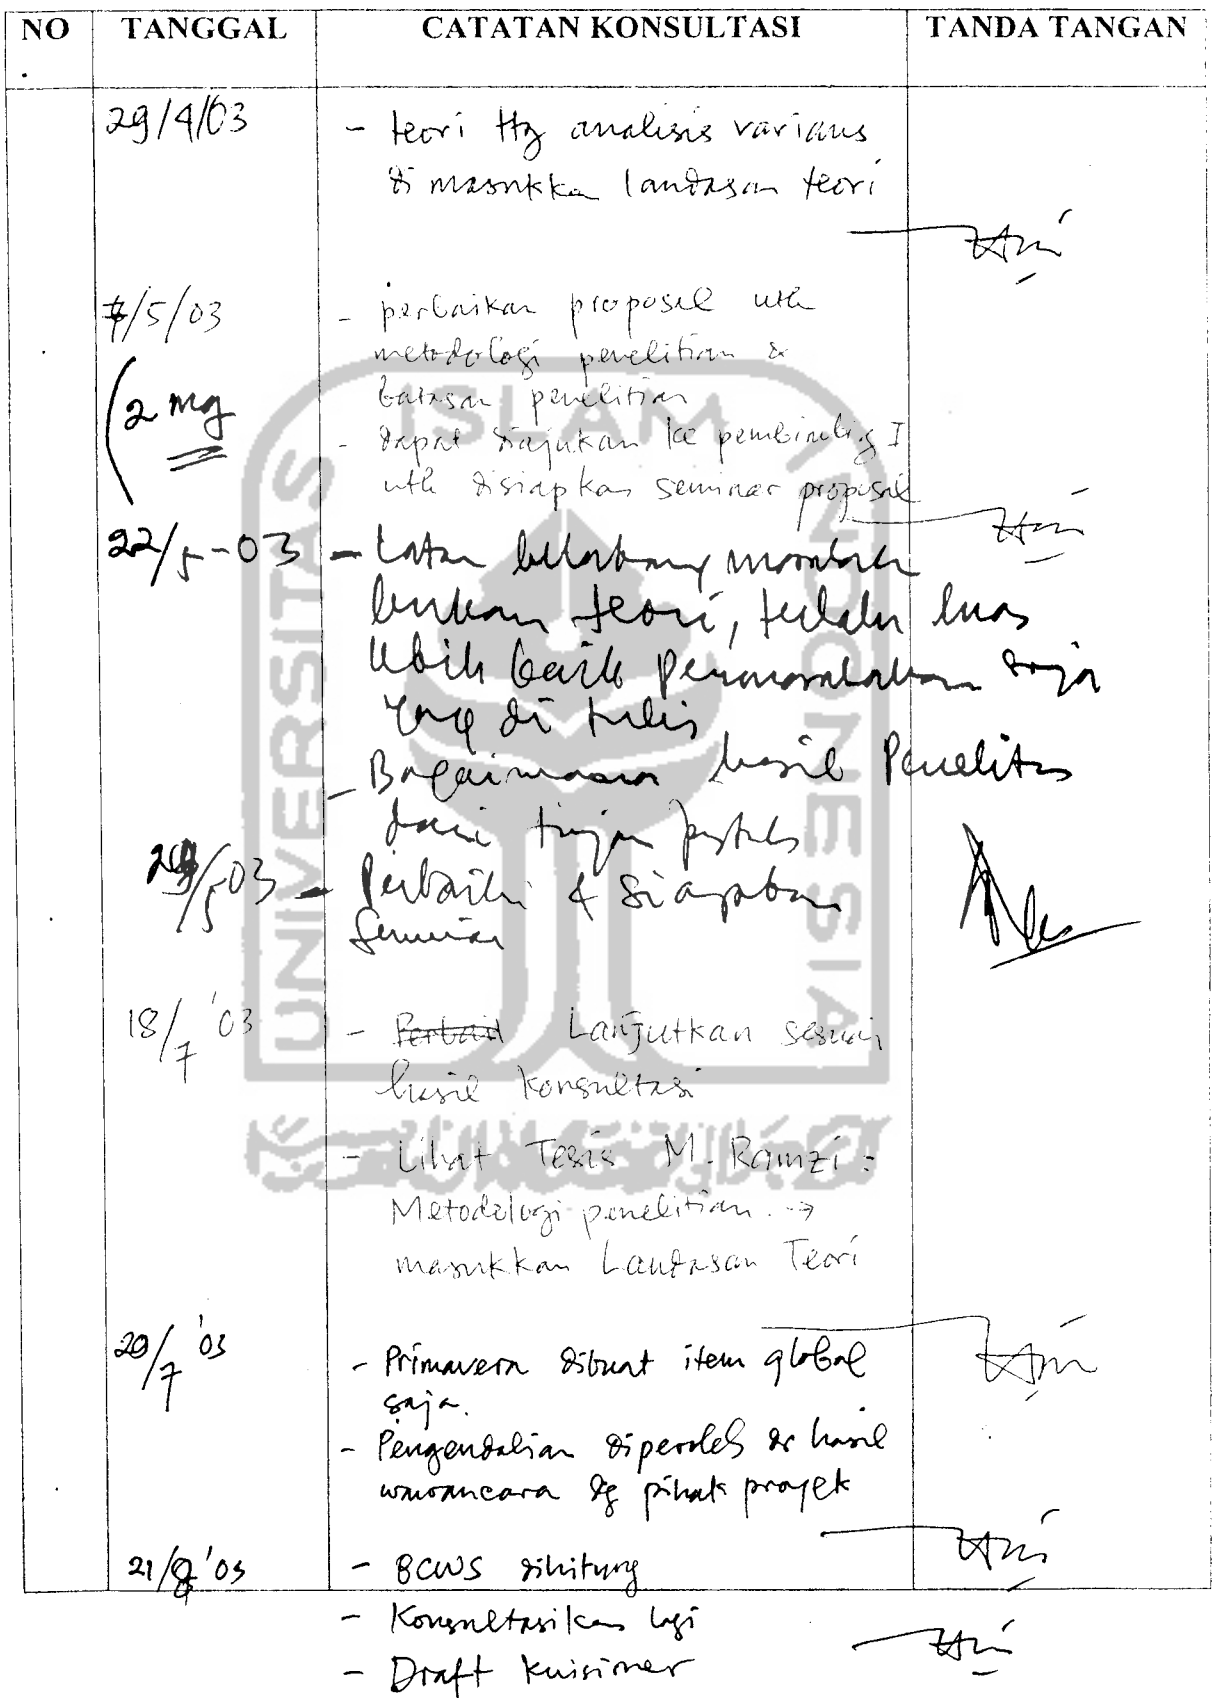 NO TANGGAL CATATAN KONSULTASI TANDA TANGAN
29/4/03 - teori ttg analisis varians
di masukkan landasan teori
7/5/03 - perbaikan proposal utk
metodologi penelitian &
(2 mg batasan penelitian
- dapat diajukan ke pembimbing I
utk disiapkan seminar proposal
22/5-03 - Latar belakang masalah
bukan teori, terlalu luas
lebih baik permasalahan saja
yang di tulis
- Bagaimana hasil Penelitian
dari tinjauan pustaka
/5 03 - Perbaiki & siapkan
Seminar
18/7 '03 - Perbaiki Lanjutkan sesuai
hasil konsultasi
- Lihat Tesis M. Ramzi :
Metodologi penelitian →
masukkan Landasan Teori
20/7 '03 - Primavera dibuat item global
saja.
- Pengendalian diperoleh dr hasil
wawancara dg pihak proyek
21/8 '03 - BCWS dihitung
- Konsultasikan lagi
- Draft kuisioner
UNIVERSITAS ISLAM INDONESIA